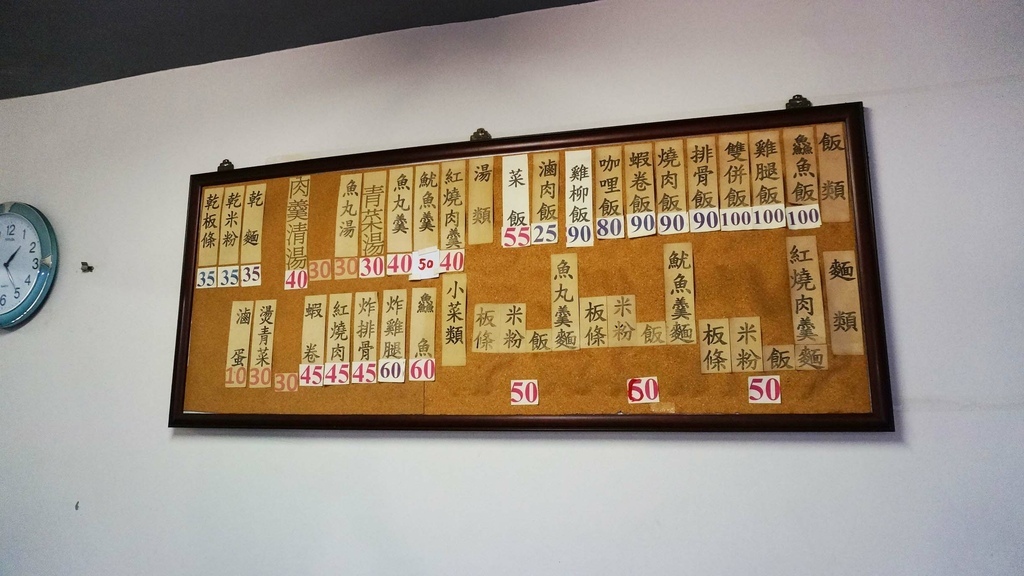 飯類
鱻魚飯 100
雞腿飯 100
雙併飯 100
排骨飯 90
燒肉飯 90
蝦卷飯 90
咖哩飯 80
雞柳飯 90
滷肉飯 25
菜飯 55
湯類
紅燒肉羹 40
魷魚羹 50
魚丸羹 40
青菜湯 30
魚丸湯 30
30
肉羹清湯 40
乾麵 35
乾米粉 35
乾板條 35
麵類
紅燒肉羹麵
飯
米粉
板條
50
魷魚羹麵
飯
米粉
板條
50
魚丸羹麵
飯
米粉
板條
50
小菜類
鱻魚 60
炸雞腿 60
炸排骨 45
紅燒肉 45
蝦卷 45
30
燙青菜 30
滷蛋 10
12
1
2
3
4
5
6